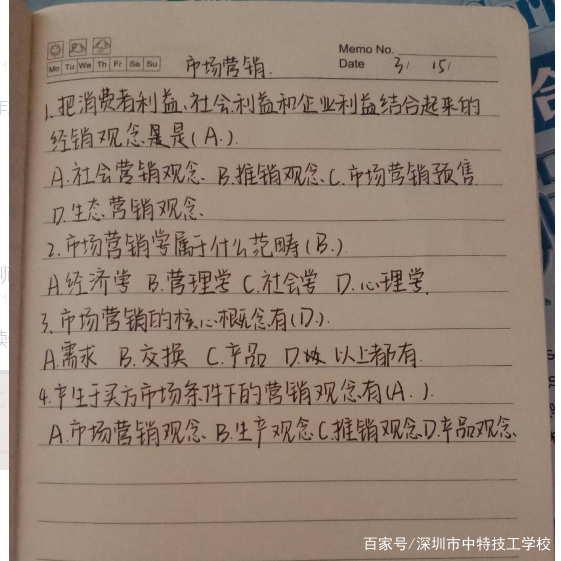 Memo No.
Mo Tu We Th Fr Sa Su
市场营销.
Date 3/ 15/
1.把消费者利益、社会利益和企业利益结合起来的
经销观念是(A.).
A.社会营销观念. B.推销观念.C.市场营销预售
D.生态营销观念.
2.市场营销学属于什么范畴(B.)
A.经济学 B.管理学 C.社会学 D.心理学.
3.市场营销的核心概念有(D.).
A.需求 B.交换 C.产品 D.以上都有.
4.产生于买方市场条件下的营销观念有(A.).
A.市场营销观念. B.生产观念C.推销观念D.产品观念.
百家号/深圳市中特技工学校